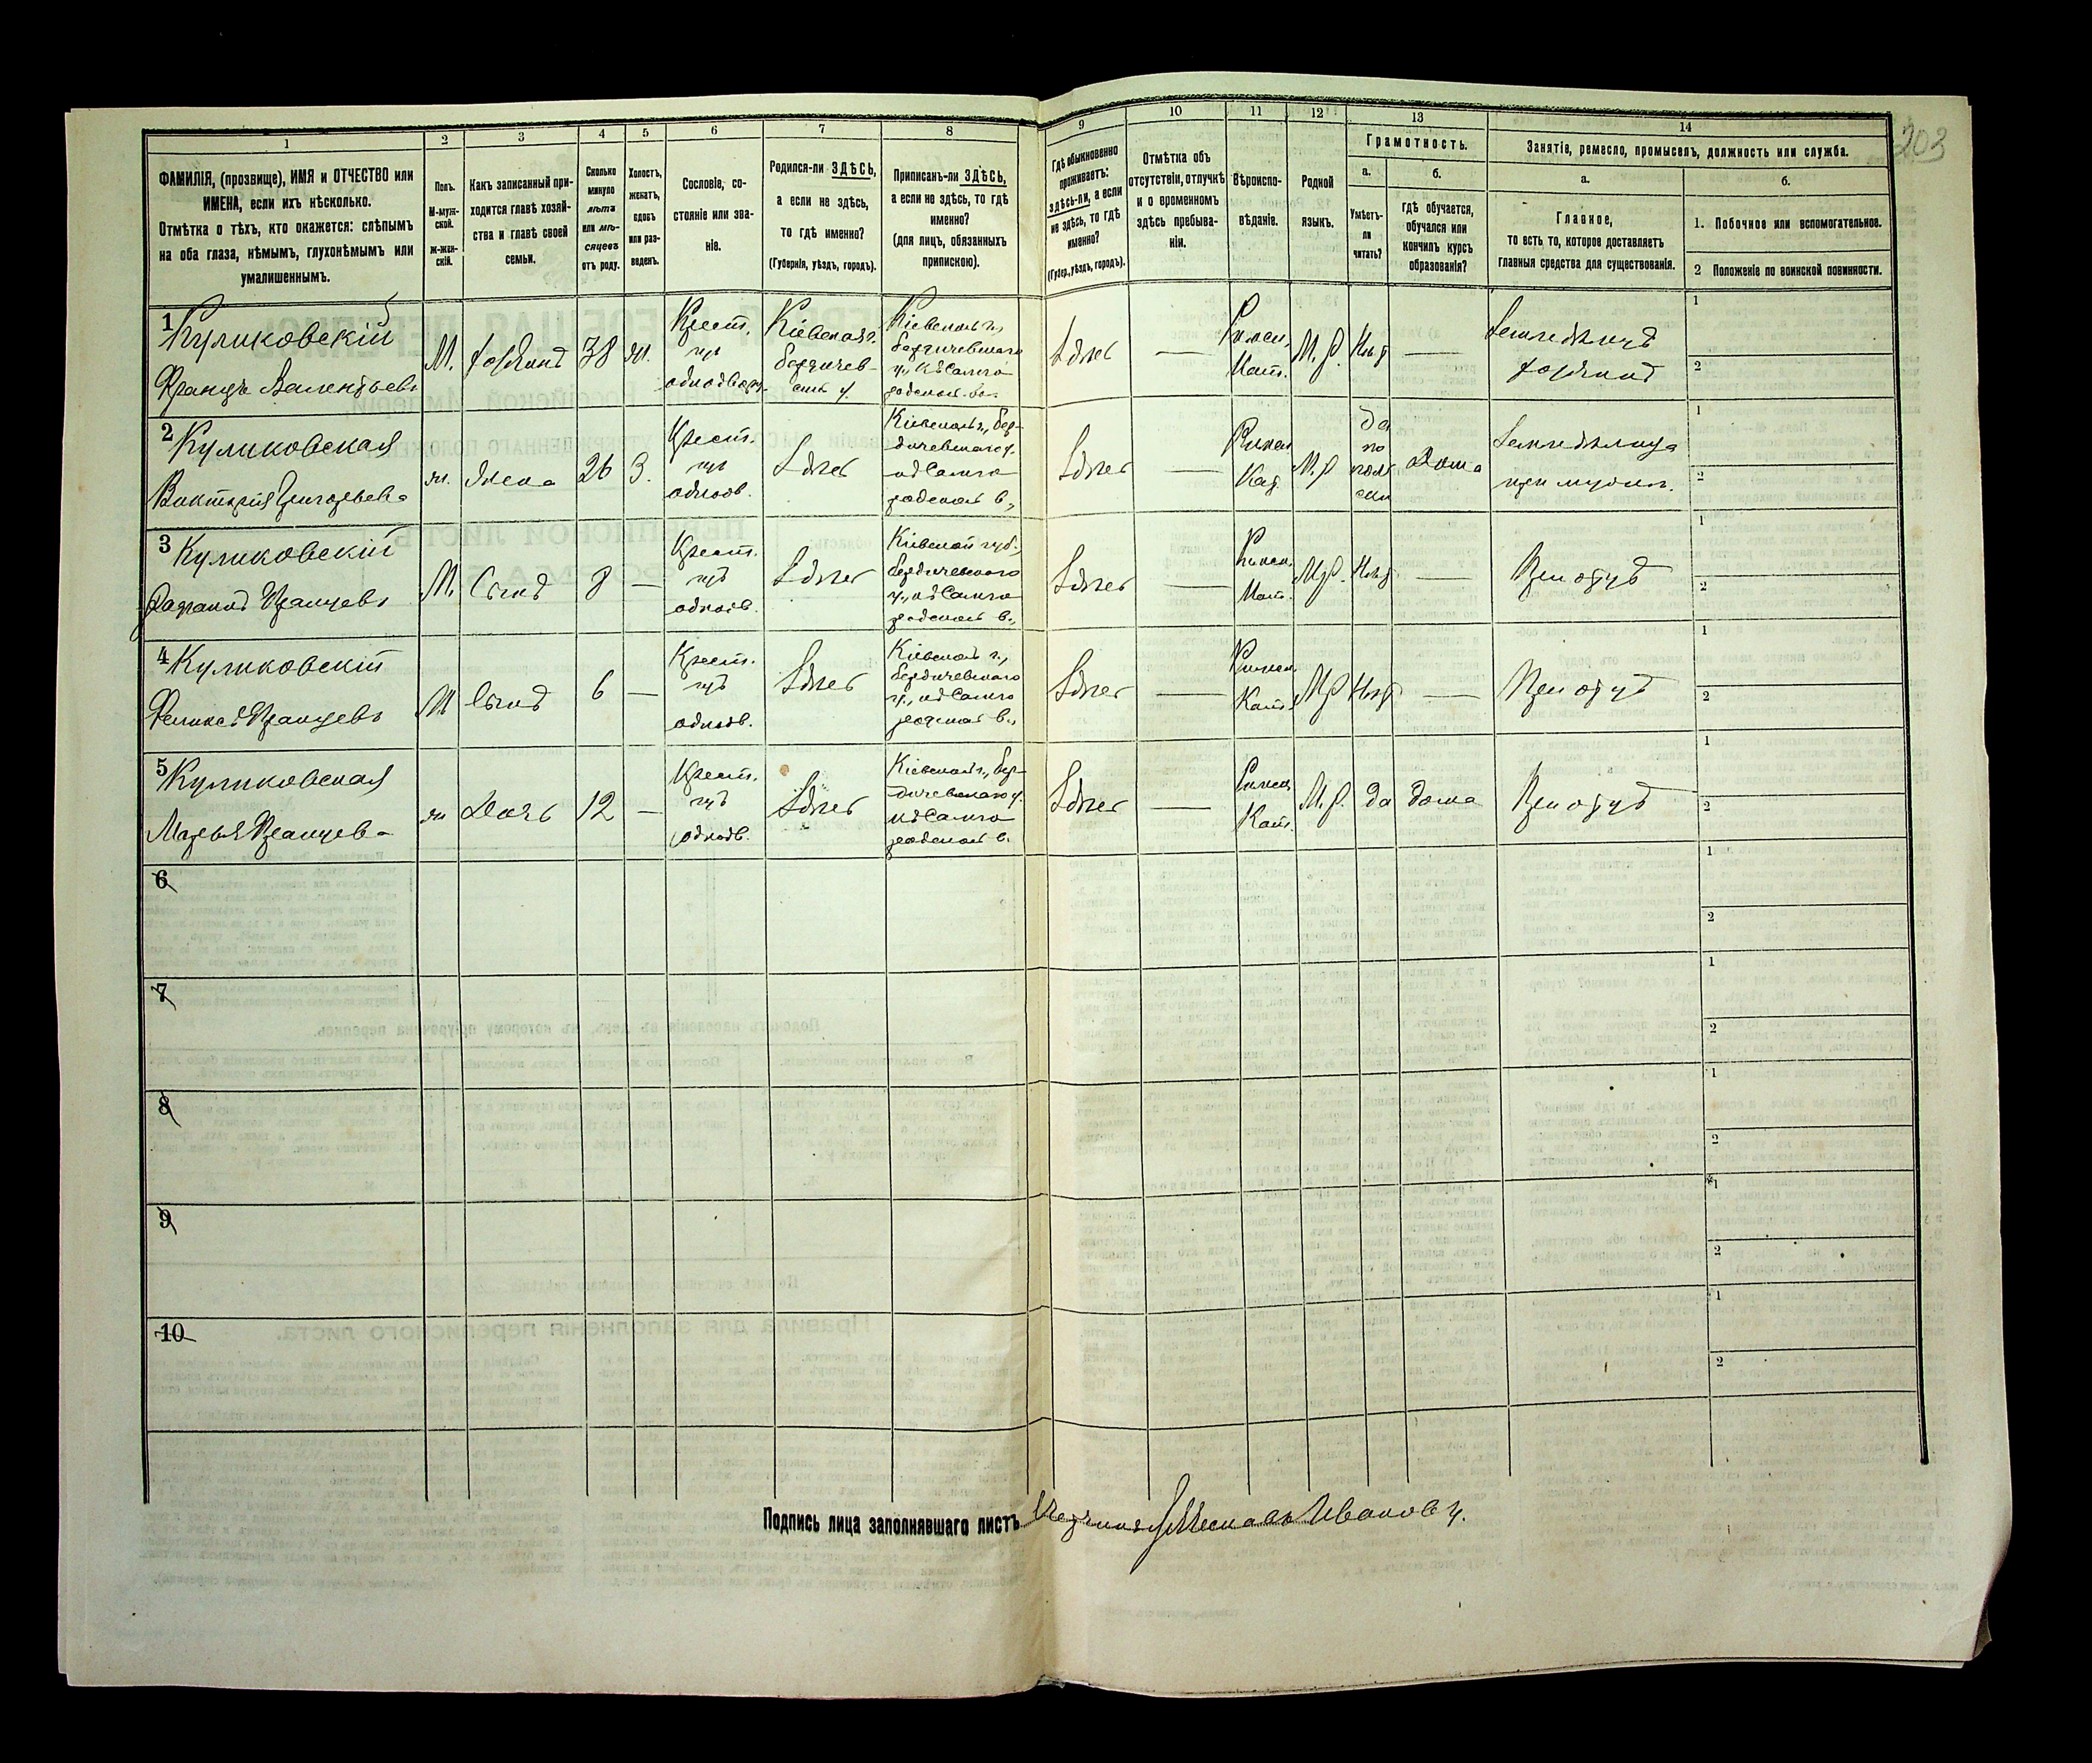 203
1 2 3 4 5 6 7 8 9 10 11 12 13 14
ФАМИЛІЯ, (прозвище), ИМЯ и ОТЧЕСТВО или
ИМЕНА, если ихъ нѣсколько.
Отмѣтка о тѣхъ, кто окажется: слѣпымъ
на оба глаза, нѣмымъ, глухонѣмымъ или
умалишеннымъ.
Полъ.
М-муж-
ской.
Ж-жен-
скій.
Какъ записанный при-
ходится главѣ хозяй-
ства и главѣ своей
семьи.
Сколько
минуло
лѣтъ
или мѣ-
сяцевъ
отъ роду.
Холостъ,
женатъ,
вдовъ
или раз-
веденъ.
Сословіе, со-
стояніе или зва-
ніе.
Родился-ли ЗДѢСЬ,
а если не здѣсь,
то гдѣ именно?
(Губернія, уѣздъ, городъ).
Приписанъ-ли ЗДѢСЬ,
а если не здѣсь, то гдѣ
именно?
(для лицъ, обязанныхъ
припискою).
Гдѣ обыкновенно
проживаетъ:
здѣсь-ли, а если
не здѣсь, то гдѣ
именно?
(Губер., уѣздъ, городъ).
Отмѣтка объ
отсутствіи, отлучкѣ
и о временномъ
здѣсь пребыва-
ніи.
Вѣроиспо-
вѣданіе.
Родной
языкъ.
Грамотность.
а.
Умѣетъ-
ли
читать?
б.
Гдѣ обучается,
обучался или
кончилъ курсъ
образованія?
Занятіе, ремесло, промыселъ, должность или служба.
а.
Главное,
то есть то, которое доставляетъ
главныя средства для существованія.
б.
1. Побочное или вспомогательное.
2 Положеніе по воинской повинности.
1 Куликовскій
Францъ
М.
38
Крест.
изъ
однодворц.
Кіевская г.
Бердичев-
Кіевской г.,
Бердичевскаго
Здѣсь
—
Римск.
Кат.
М. Р.
Нѣт
—
1
2
2 Куликовская
Викторія Григорьева
жена
26
З.
Крест.
изъ
однодв.
Здѣсь
Кіевской г., Бер-
дичевскаго у.
Здѣсь
—
Римск.
Кат.
М. Р.
да
по
Дома
при муж.
1
2
3 Куликовскій
Францевъ
М.
Сынъ
8
—
Крест.
изъ
однодв.
Здѣсь
Кіевской губ.,
Бердичевскаго
Здѣсь
—
Римск.
Кат.
М. Р.
Нѣт
—
При отцѣ
1
2
4 Куликовскій
Феликсъ Францевъ
М
Сынъ
6
—
Крест.
изъ
однодв.
Здѣсь
Кіевской г.,
Бердичевскаго
Здѣсь
—
Римск.
Кат.
М Р
Нѣт
—
При отцѣ
1
2
5 Куликовская
Марья Францева
Дочь
12
—
Крест.
изъ
однодв.
Здѣсь
Кіевской г., Бер-
дичевскаго у.
Здѣсь
—
Римск.
Кат.
М. Р.
да
дома
При отцѣ
1
2
6
1
2
7
1
2
8
1
2
9
1
2
10
1
2
Подпись лица заполнявшаго листъ